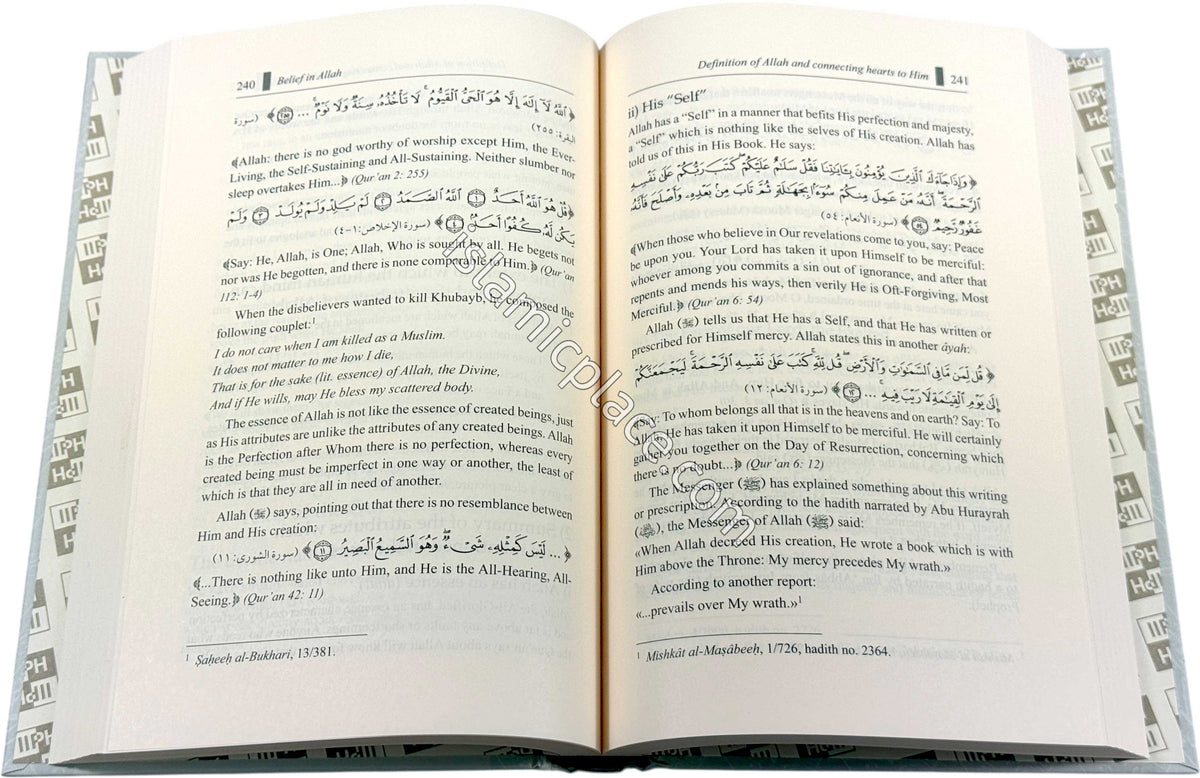 240 Belief in Allah
﴿ ٱللَّهُ لَآ إِلَٰهَ إِلَّا هُوَ ٱلْحَىُّ ٱلْقَيُّومُ ۚ لَا تَأْخُذُهُۥ سِنَةٌ وَلَا نَوْمٌ ۚ ... ﴿٢٥٥﴾ ﴾ (سورة
البقرة: ٢٥٥)
﴾Allah: there is no god worthy of worship except Him, the Ever-
Living, the Self-Sustaining and All-Sustaining. Neither slumber nor
sleep overtakes Him...﴿ (Qur'an 2: 255)
﴿ قُلْ هُوَ ٱللَّهُ أَحَدٌ ﴿١﴾ ٱللَّهُ ٱلصَّمَدُ ﴿٢﴾ لَمْ يَلِدْ وَلَمْ يُولَدْ ﴿٣﴾ وَلَمْ
يَكُن لَّهُۥ كُفُوًا أَحَدٌۢ ﴿٤﴾ ﴾ (سورة الإخلاص: ١-٤)
﴾Say: He, Allah, is One; Allah, Who is sought by all. He begets not
nor was He begotten, and there is none comparable to Him.﴿ (Qur'an
112: 1-4)
When the disbelievers wanted to kill Khubayb, he composed the
following couplet:¹
I do not care when I am killed as a Muslim.
It does not matter to me how I die,
That is for the sake (lit. essence) of Allah, the Divine,
And if He wills, may He bless my scattered body.
The essence of Allah is not like the essence of created beings, just
as His attributes are unlike the attributes of any created beings. Allah
is the Perfection after Whom there is no perfection, whereas every
created being must be imperfect in one way or another, the least of
which is that they are all in need of another.
Allah (ﷻ) says, pointing out that there is no resemblance between
Him and His creation:
﴿ ... لَيْسَ كَمِثْلِهِۦ شَىْءٌ ۖ وَهُوَ ٱلسَّمِيعُ ٱلْبَصِيرُ ﴿١١﴾ ﴾ (سورة الشورى: ١١)
﴾...There is nothing like unto Him, and He is the All-Hearing, All-
Seeing.﴿ (Qur'an 42: 11)
¹ Ṣaḥeeḥ al-Bukhari, 13/381.
Definition of Allah and connecting hearts to Him 241
ii) His "Self"
Allah has a "Self" in a manner that befits His perfection and majesty,
a "Self" which is nothing like the selves of His creation. Allah has
told us of this in His Book. He says:
﴿ وَإِذَا جَآءَكَ ٱلَّذِينَ يُؤْمِنُونَ بِـَٔايَٰتِنَا فَقُلْ سَلَٰمٌ عَلَيْكُمْ ۖ كَتَبَ رَبُّكُمْ عَلَىٰ نَفْسِهِ
ٱلرَّحْمَةَ ۖ أَنَّهُۥ مَنْ عَمِلَ مِنكُمْ سُوٓءًۢا بِجَهَٰلَةٍ ثُمَّ تَابَ مِنۢ بَعْدِهِۦ وَأَصْلَحَ فَأَنَّهُۥ
غَفُورٌ رَّحِيمٌ ﴿٥٤﴾ ﴾ (سورة الأنعام: ٥٤)
﴾When those who believe in Our revelations come to you, say: Peace
be upon you. Your Lord has taken it upon Himself to be merciful:
whoever among you commits a sin out of ignorance, and after that
repents and mends his ways, then verily He is Oft-Forgiving, Most
Merciful.﴿ (Qur'an 6: 54)
Allah (ﷻ) tells us that He has a Self, and that He has written or
prescribed for Himself mercy. Allah states this in another âyah:
﴿ قُل لِّمَن مَّا فِى ٱلسَّمَٰوَٰتِ وَٱلْأَرْضِ ۖ قُل لِّلَّهِ ۚ كَتَبَ عَلَىٰ نَفْسِهِ ٱلرَّحْمَةَ ۚ لَيَجْمَعَنَّكُمْ
إِلَىٰ يَوْمِ ٱلْقِيَٰمَةِ لَا رَيْبَ فِيهِ ۚ ... ﴿١٢﴾ ﴾ (سورة الأنعام: ١٢)
﴾Say: To whom belongs all that is in the heavens and on earth? Say: To
Allah. He has taken it upon Himself to be merciful. He will certainly
gather you together on the Day of Resurrection, concerning which
there is no doubt...﴿ (Qur'an 6: 12)
The Messenger (ﷺ) has explained something about this writing
or prescription. According to the hadith narrated by Abu Hurayrah
(رضي الله عنه), the Messenger of Allah (ﷺ) said:
«When Allah decreed His creation, He wrote a book which is with
Him above the Throne: My mercy precedes My wrath.»
According to another report:
«...prevails over My wrath.»¹
¹ Mishkât al-Maṣâbeeḥ, 1/726, hadith no. 2364.
islamicplace.com
IIPH